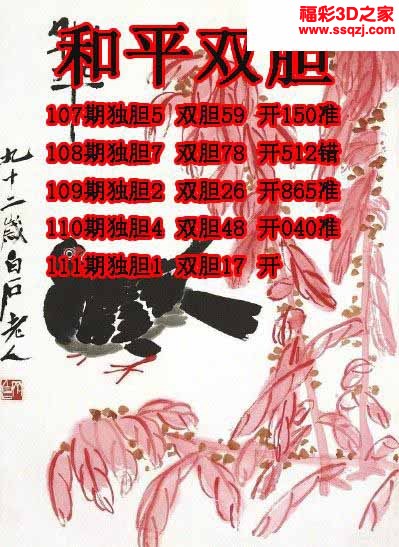 福彩3D之家
www.ssqzj.com
和平双胆
107期独胆5 双胆59 开150准
108期独胆7 双胆78 开512错
109期独胆2 双胆26 开865准
110期独胆4 双胆48 开040准
111期独胆1 双胆17 开
九十二岁白石老人